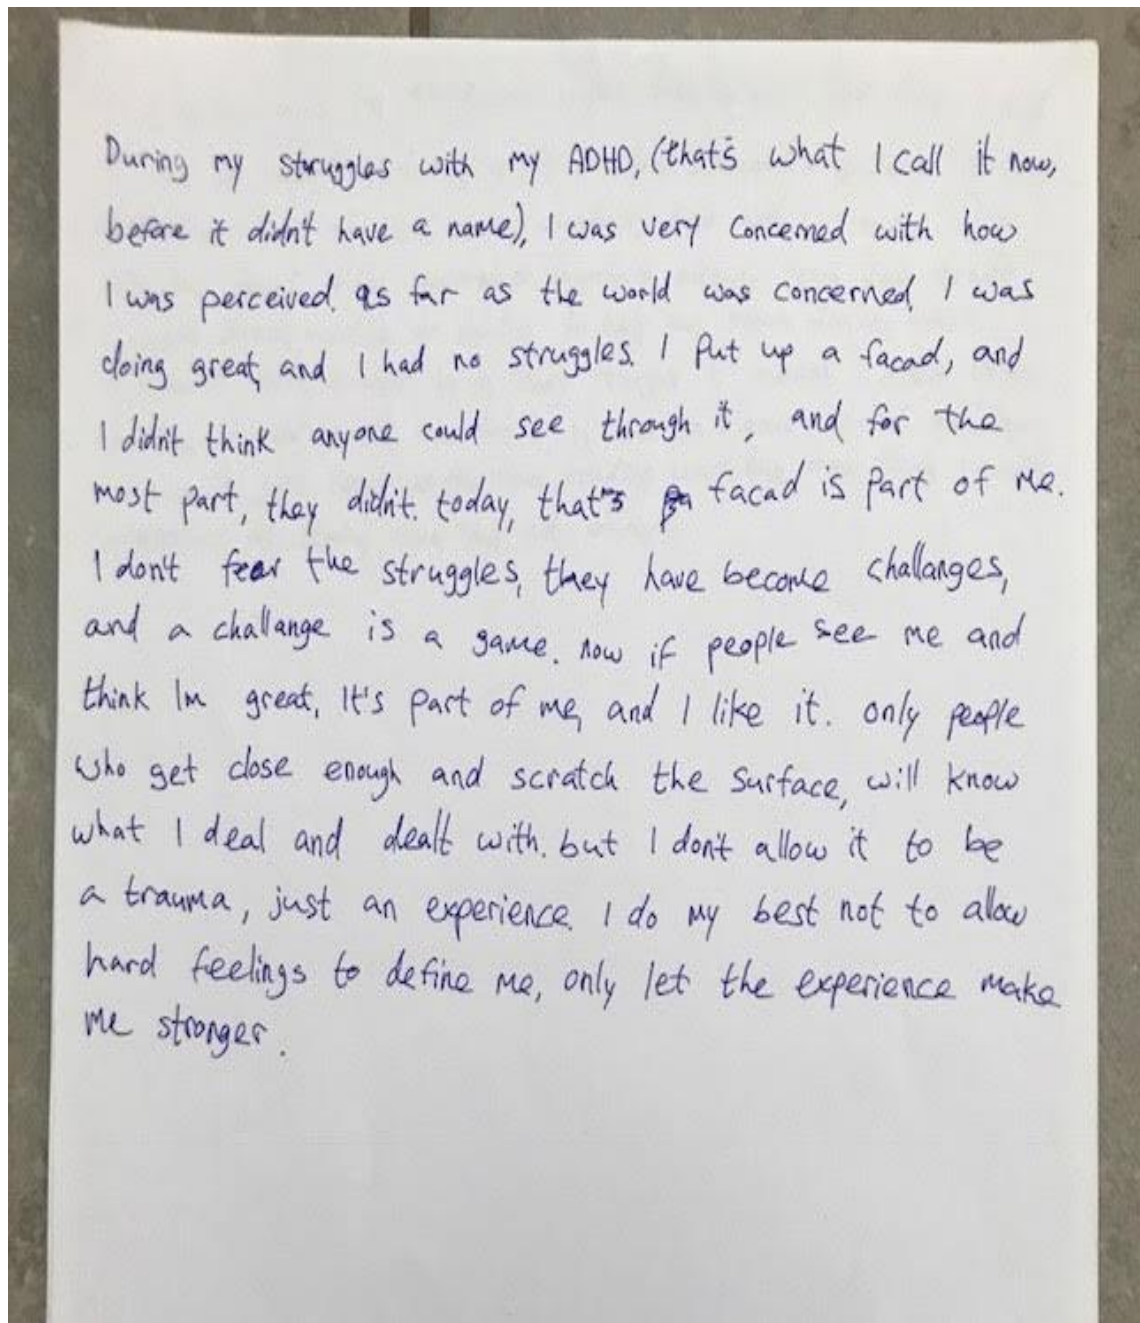 During my struggles with my ADHD, (that's what I call it now,
before it didn't have a name), I was very concerned with how
I was perceived. as far as the world was concerned, I was
doing great, and I had no struggles. I put up a facad, and
I didn't think anyone could see through it, and for the
most part, they didn't. today, that's facad is part of me.
I don't fear the struggles, they have become challanges,
and a challange is a game. now if people see me and
think Im great, It's part of me, and I like it. only people
who get close enough and scratch the surface, will know
what I deal and dealt with. but I don't allow it to be
a trauma, just an experience. I do my best not to allow
hard feelings to define me, only let the experience make
me stronger.